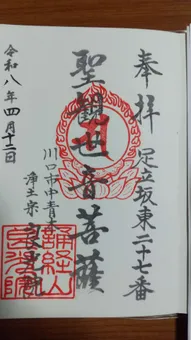 奉拝
足立坂東二十七番
聖観世音菩薩
川口市中青木
浄土宗
令和八年四月十二日
誦経山